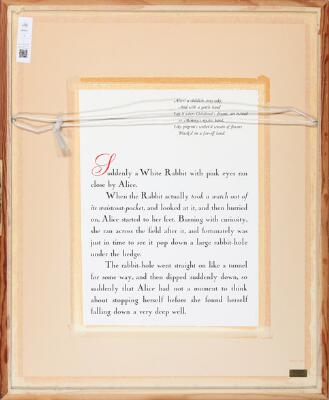 Alice! a childish story take
And with a gentle hand
Lay it where Childhood's dreams are twined
in Memory's mystic band,
Like pilgrim's wither'd wreath of flowers
Pluck'd in a far-off land.
Suddenly a White Rabbit with pink eyes ran
close by Alice.
When the Rabbit actually took a watch out of
its waistcoat-pocket, and looked at it, and then hurried
on, Alice started to her feet. Burning with curiosity,
she ran across the field after it, and fortunately was
just in time to see it pop down a large rabbit-hole
under the hedge.
The rabbit-hole went straight on like a tunnel
for some way, and then dipped suddenly down, so
suddenly that Alice had not a moment to think
about stopping herself before she found herself
falling down a very deep well.